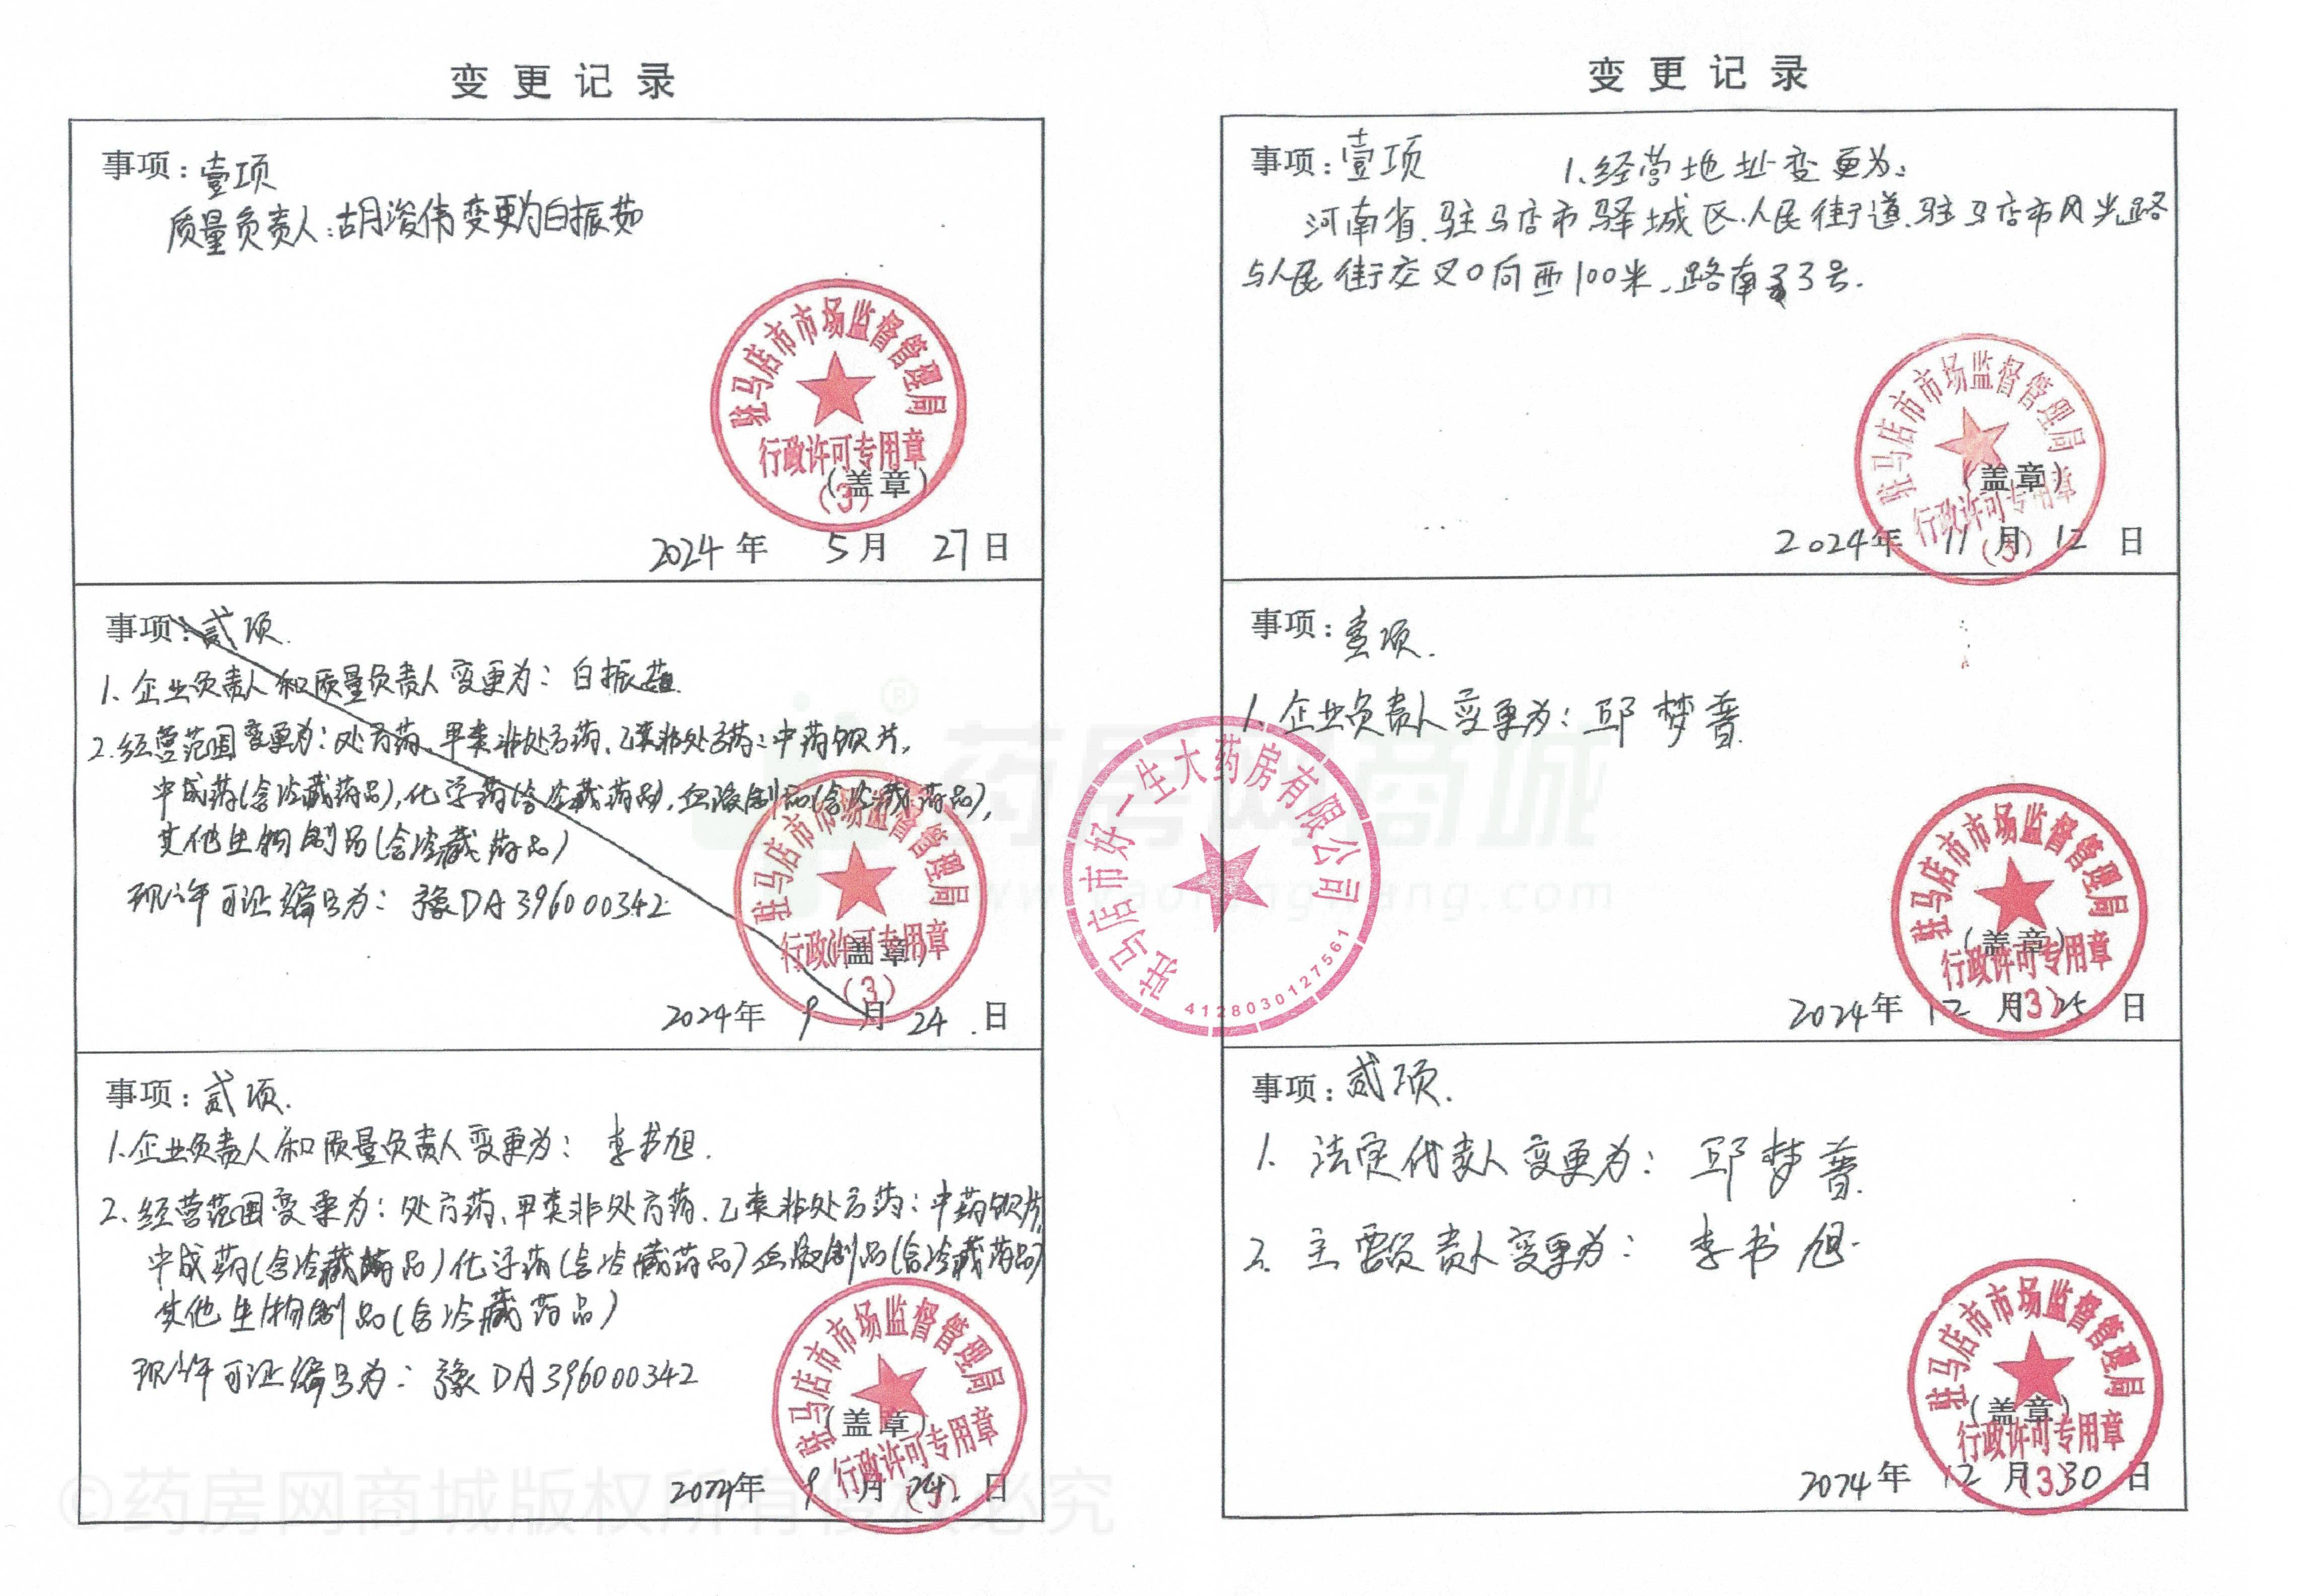 变更记录
事项：壹项
质量负责人：胡浚伟变更为白振茹
驻马店市市场监督管理局
行政许可专用章
（盖章）
（3）
2024年 5月 27日
事项：贰项.
1、企业负责人和质量负责人变更为：白振茹
2、经营范围变更为：处方药、甲类非处方药、乙类非处方药：中药饮片，
中成药(含冷藏药品)，化学药(含冷藏药品)，血液制品(含冷藏药品)，
其他生物制品(含冷藏药品)
现许可证编号为：豫DA396000342
驻马店市市场监督管理局
行政许可专用章
（盖章）
（3）
2024年 9月 24.日
事项：贰项.
1、企业负责人和质量负责人变更为：李书旭.
2、经营范围变更为：处方药、甲类非处方药、乙类非处方药：中药饮片，
中成药(含冷藏药品)化学药(含冷藏药品)血液制品(含冷藏药品)
其他生物制品(含冷藏药品)
现许可证编号为：豫DA396000342
驻马店市市场监督管理局
（盖章）
行政许可专用章
（3）
2024年 9月 24.日
变更记录
事项：壹项 1、经营地址变更为：
河南省驻马店市驿城区人民街道驻马店市风光路
与人民街交叉口向西100米路南3号.
驻马店市市场监督管理局
（盖章）
行政许可专用章
（3）
2024年 11月 12日
事项：壹项.
1、企业负责人变更为：邱梦普
驻马店市市场监督管理局
（盖章）
行政许可专用章
（3）
2024年 12月 25日
事项：贰项.
1、法定代表人变更为：邱梦普
2、主要负责人变更为：李书旭.
驻马店市市场监督管理局
（盖章）
行政许可专用章
（3）
2024年 12月 30日
驻马店市好一生大药房有限公司
4128030127561
®
药房网商城
www.yaofangwang.com
©药房网商城版权所有侵权必究